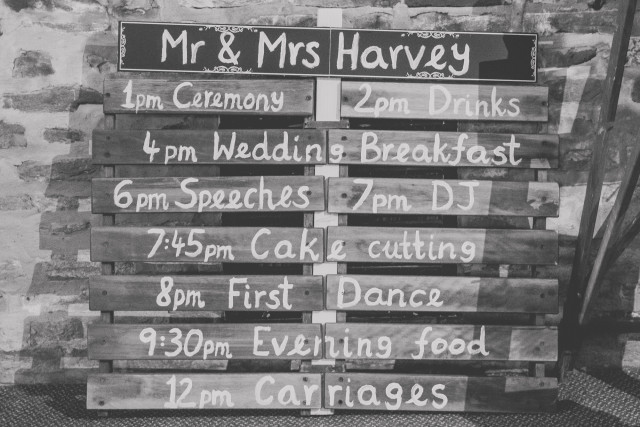 Mr & Mrs Harvey
1pm Ceremony 2pm Drinks
4pm Wedding Breakfast
6pm Speeches 7pm DJ
7:45pm Cake cutting
8pm First Dance
9:30pm Evening food
12pm Carriages